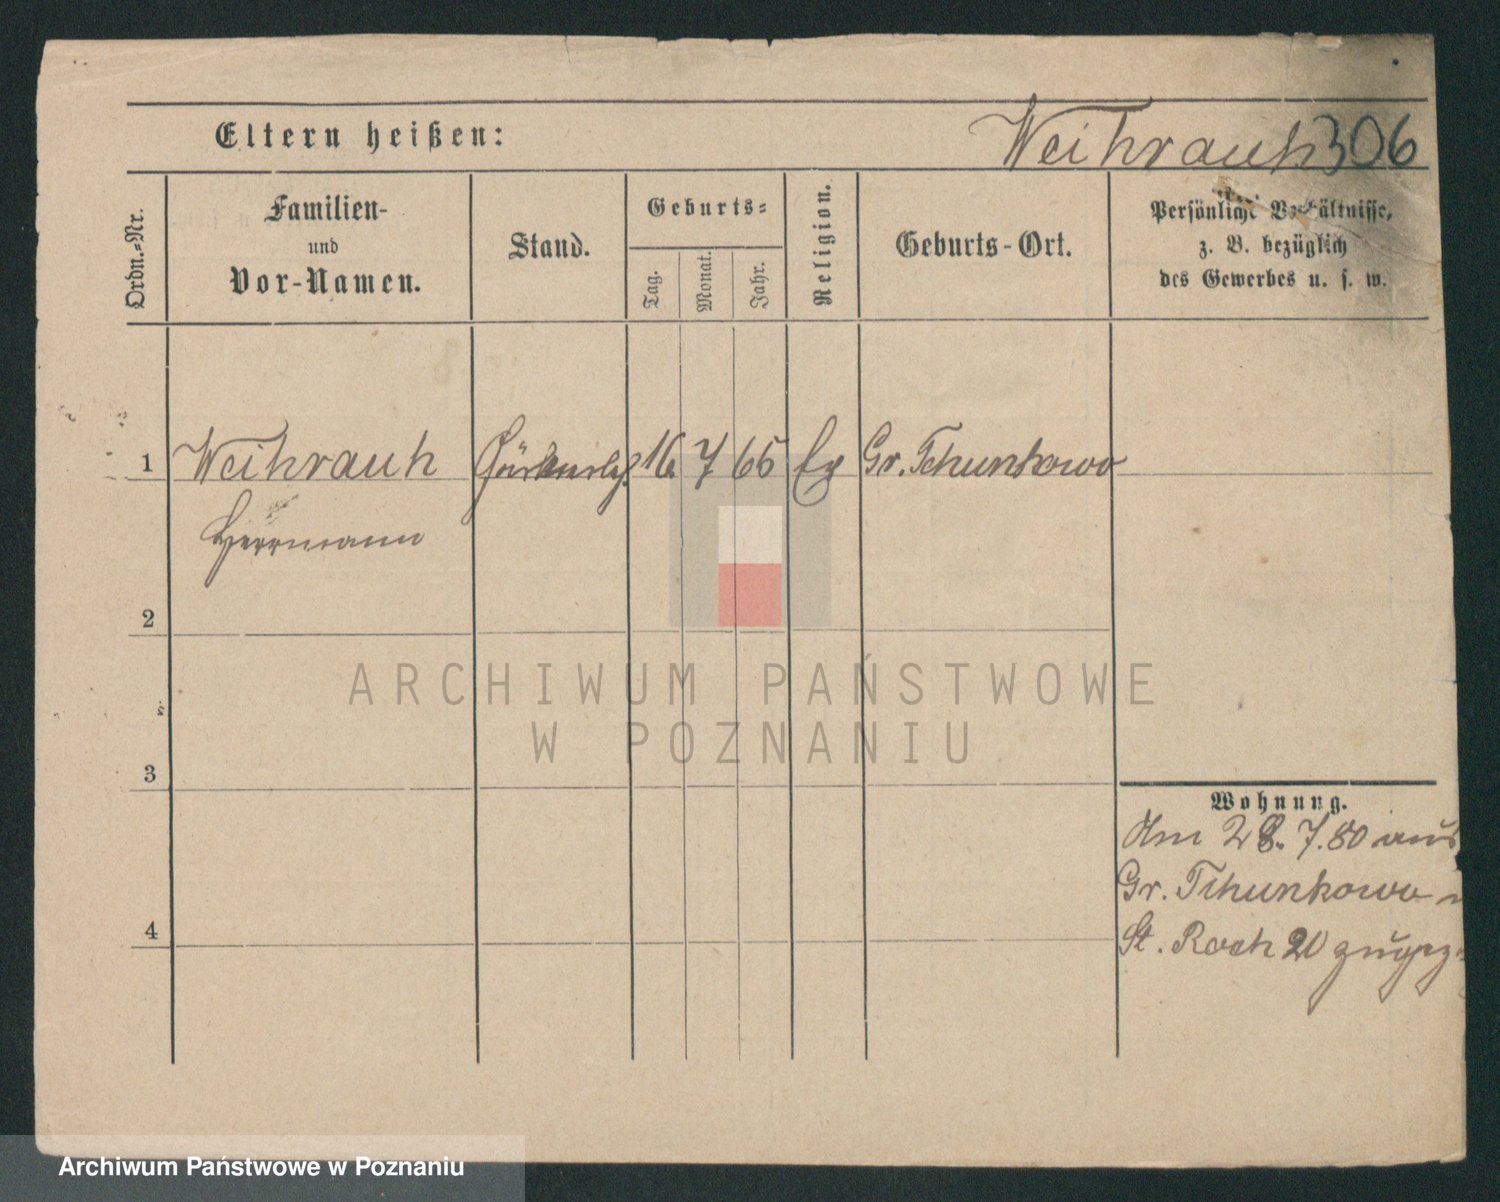 Eltern heißen: Weihrauh 306
Ordn.-Nr.
Familien-
und
Vor-Namen.
Stand.
Geburts-
Tag.
Monat.
Jahr.
Religion.
Geburts-Ort.
Persönliche Verhältnisse,
z. B. bezüglich
des Gewerbes u. s. w.
1 Weihrauh 16 7 65 Ev Gr. Tchunkowo
Herrmann
2
3
4
Wohnung.
Am 28. 7. 80 aus
Gr. Tchunkowo
St. Roch 20 zugez.
ARCHIWUM PAŃSTWOWE
W POZNANIU
Archiwum Państwowe w Poznaniu